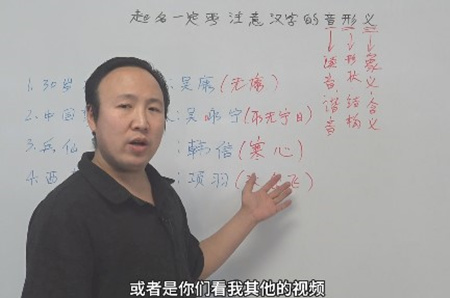 起名一定要注意汉字的音形义
1.30岁 :吴康(无康)
2.中国 :吴咏宁(永无宁日)
3.兵仙 :韩信(寒心)
4.西 :项羽( 飞)
读音谐音
形状结构
象义含义
或者是你们看我其他的视频